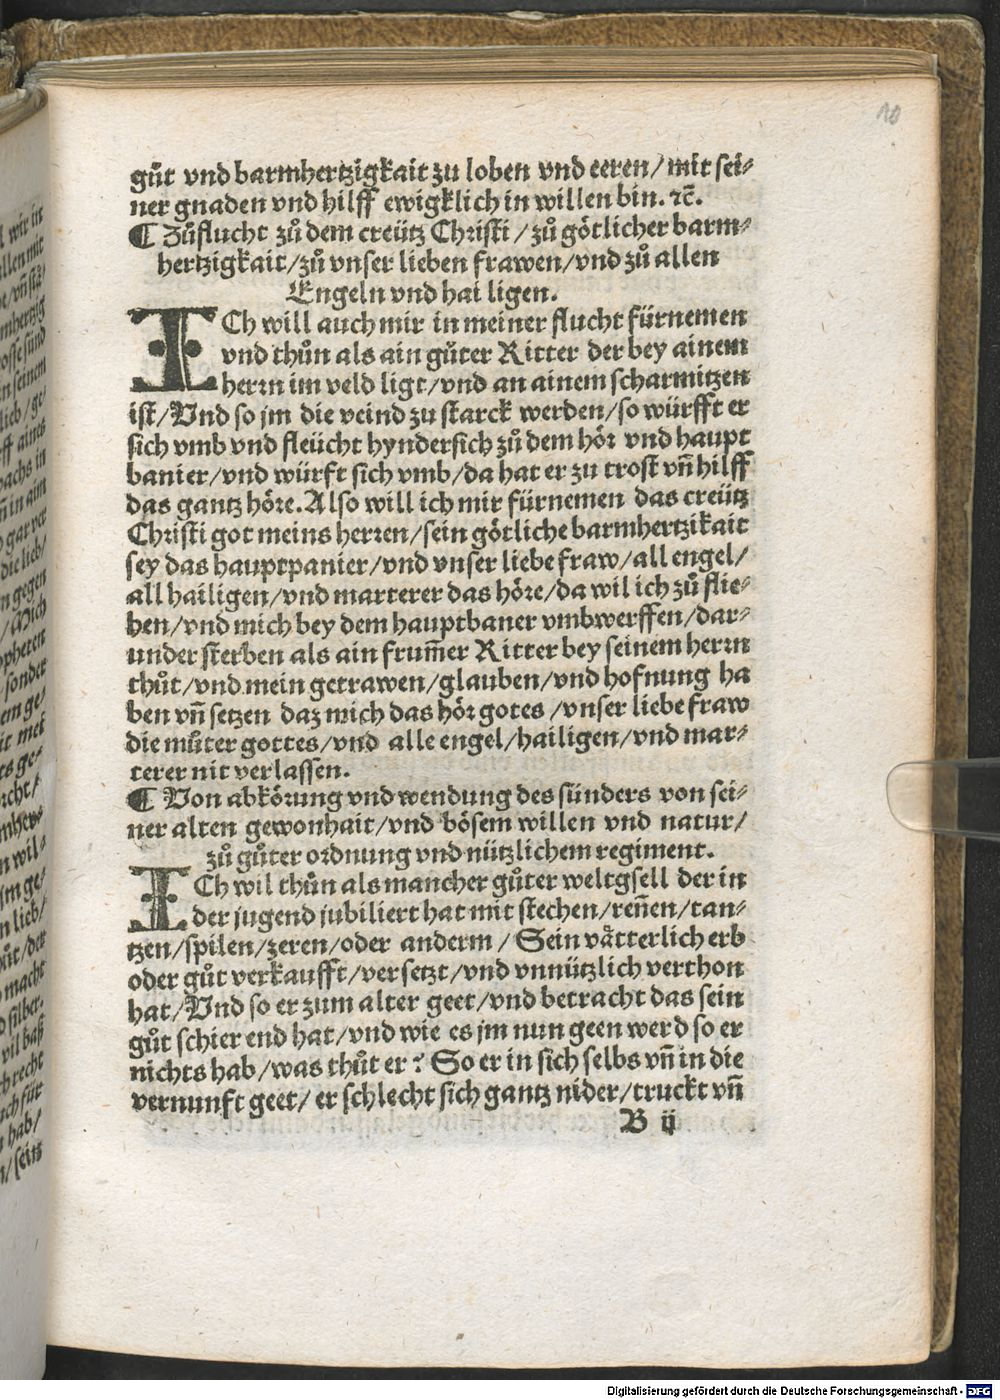 10
guͦt vnd barmhertzigkait zu loben vnd eeren/ mit sei⸗
ner gnaden vnd hilff ewigklich in willen bin. ꝛc̄.
¶ Zuͦflucht zuͦ dem creütz Christi / zuͦ goͤtlicher barm⸗
hertzigkait/zuͦ vnser lieben frawen/vnd zuͦ allen
Engeln vnd hai ligen.
ICh will auch mir in meiner flucht fürnemen
vnd thuͦn als ain guͦter Ritter der bey ainem
herrn im veld ligt/vnd an ainem scharmitzen
ist/Vnd so jm die veind zu starck werden/so würfft er
sich vmb vnd fleücht hyndersich zuͦ dem hoͤr vnd haupt
banier/vnd würft sich vmb/da hat er zu trost vñ hilff
das gantz hoͤre. Also will ich mir fürnemen das creütz
Christi got meins herren/sein goͤtliche barmhertzikait
sey das hauptpanier/vnd vnser liebe fraw/all engel/
all hailigen/vnd marterer das hoͤre/da wil ich zuͦ flie⸗
hen/vnd mich bey dem hauptbaner vmbwerffen/dar⸗
under sterben als ain frum̃er Ritter bey seinem herrn
thuͦt/vnd mein getrawen/glauben/vnd hofnung ha
ben vñ setzen daz mich das hoͤr gotes /vnser liebe fraw
die muͦter gottes/vnd alle engel/hailigen/vnd mar⸗
terer nit verlassen.
¶ Von abkoͤrung vnd wendung des sünders von sei⸗
ner alten gewonhait/vnd boͤsem willen vnd natur/
zuͦ guͦter ordnung vnd nützlichem regiment.
ICh wil thuͦn als mancher guͦter weltgsell der in
der jugend jubiliert hat mit stechen/reñen/tan⸗
tzen/spilen/zeren/oder anderm / Sein vaͤtterlich erb
oder guͦt verkaufft/versetzt/vnd vnnützlich verthon
hat/Vnd so er zum alter geet/vnd betracht das sein
guͦt schier end hat/vnd wie es jm nun geen werd so er
nichts hab/was thuͦt er? So er in sich selbs vñ in die
vernunft geet/ er schlecht sich gantz nider/truckt vñ
B ij
Digitalisierung gefördert durch die Deutsche Forschungsgemeinschaft - DFG